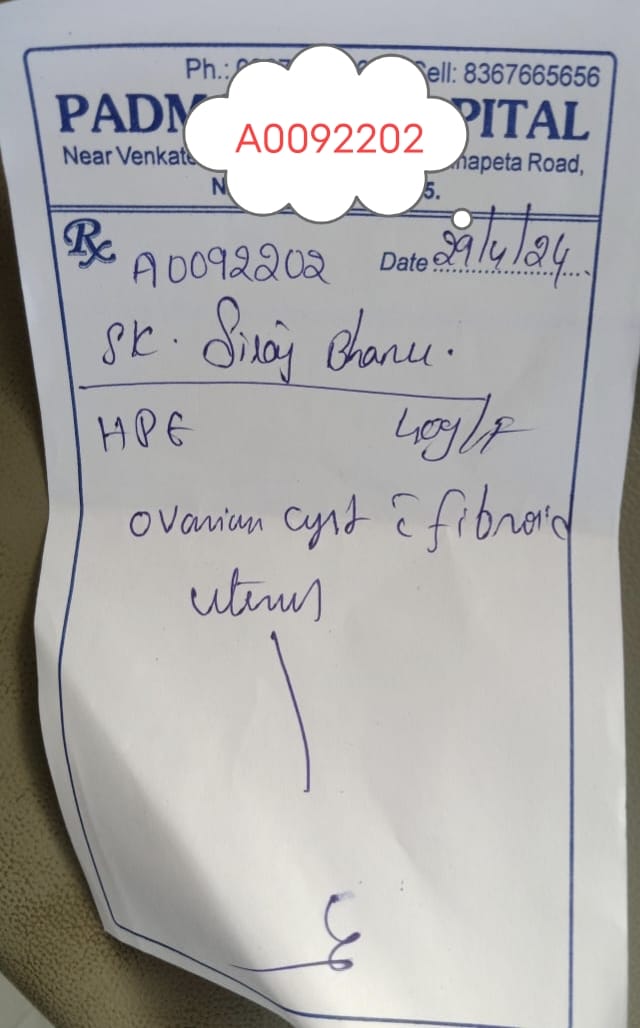 Ph.: Cell: 8367665656
PADM PITAL
Near Venkate napeta Road,
N 5.
A0092202
Rx A0092202 Date 29/4/24
SK. Siraj Bhanu.
HPE 40y/F
ovarian cyst c̄ fibroid
uterus